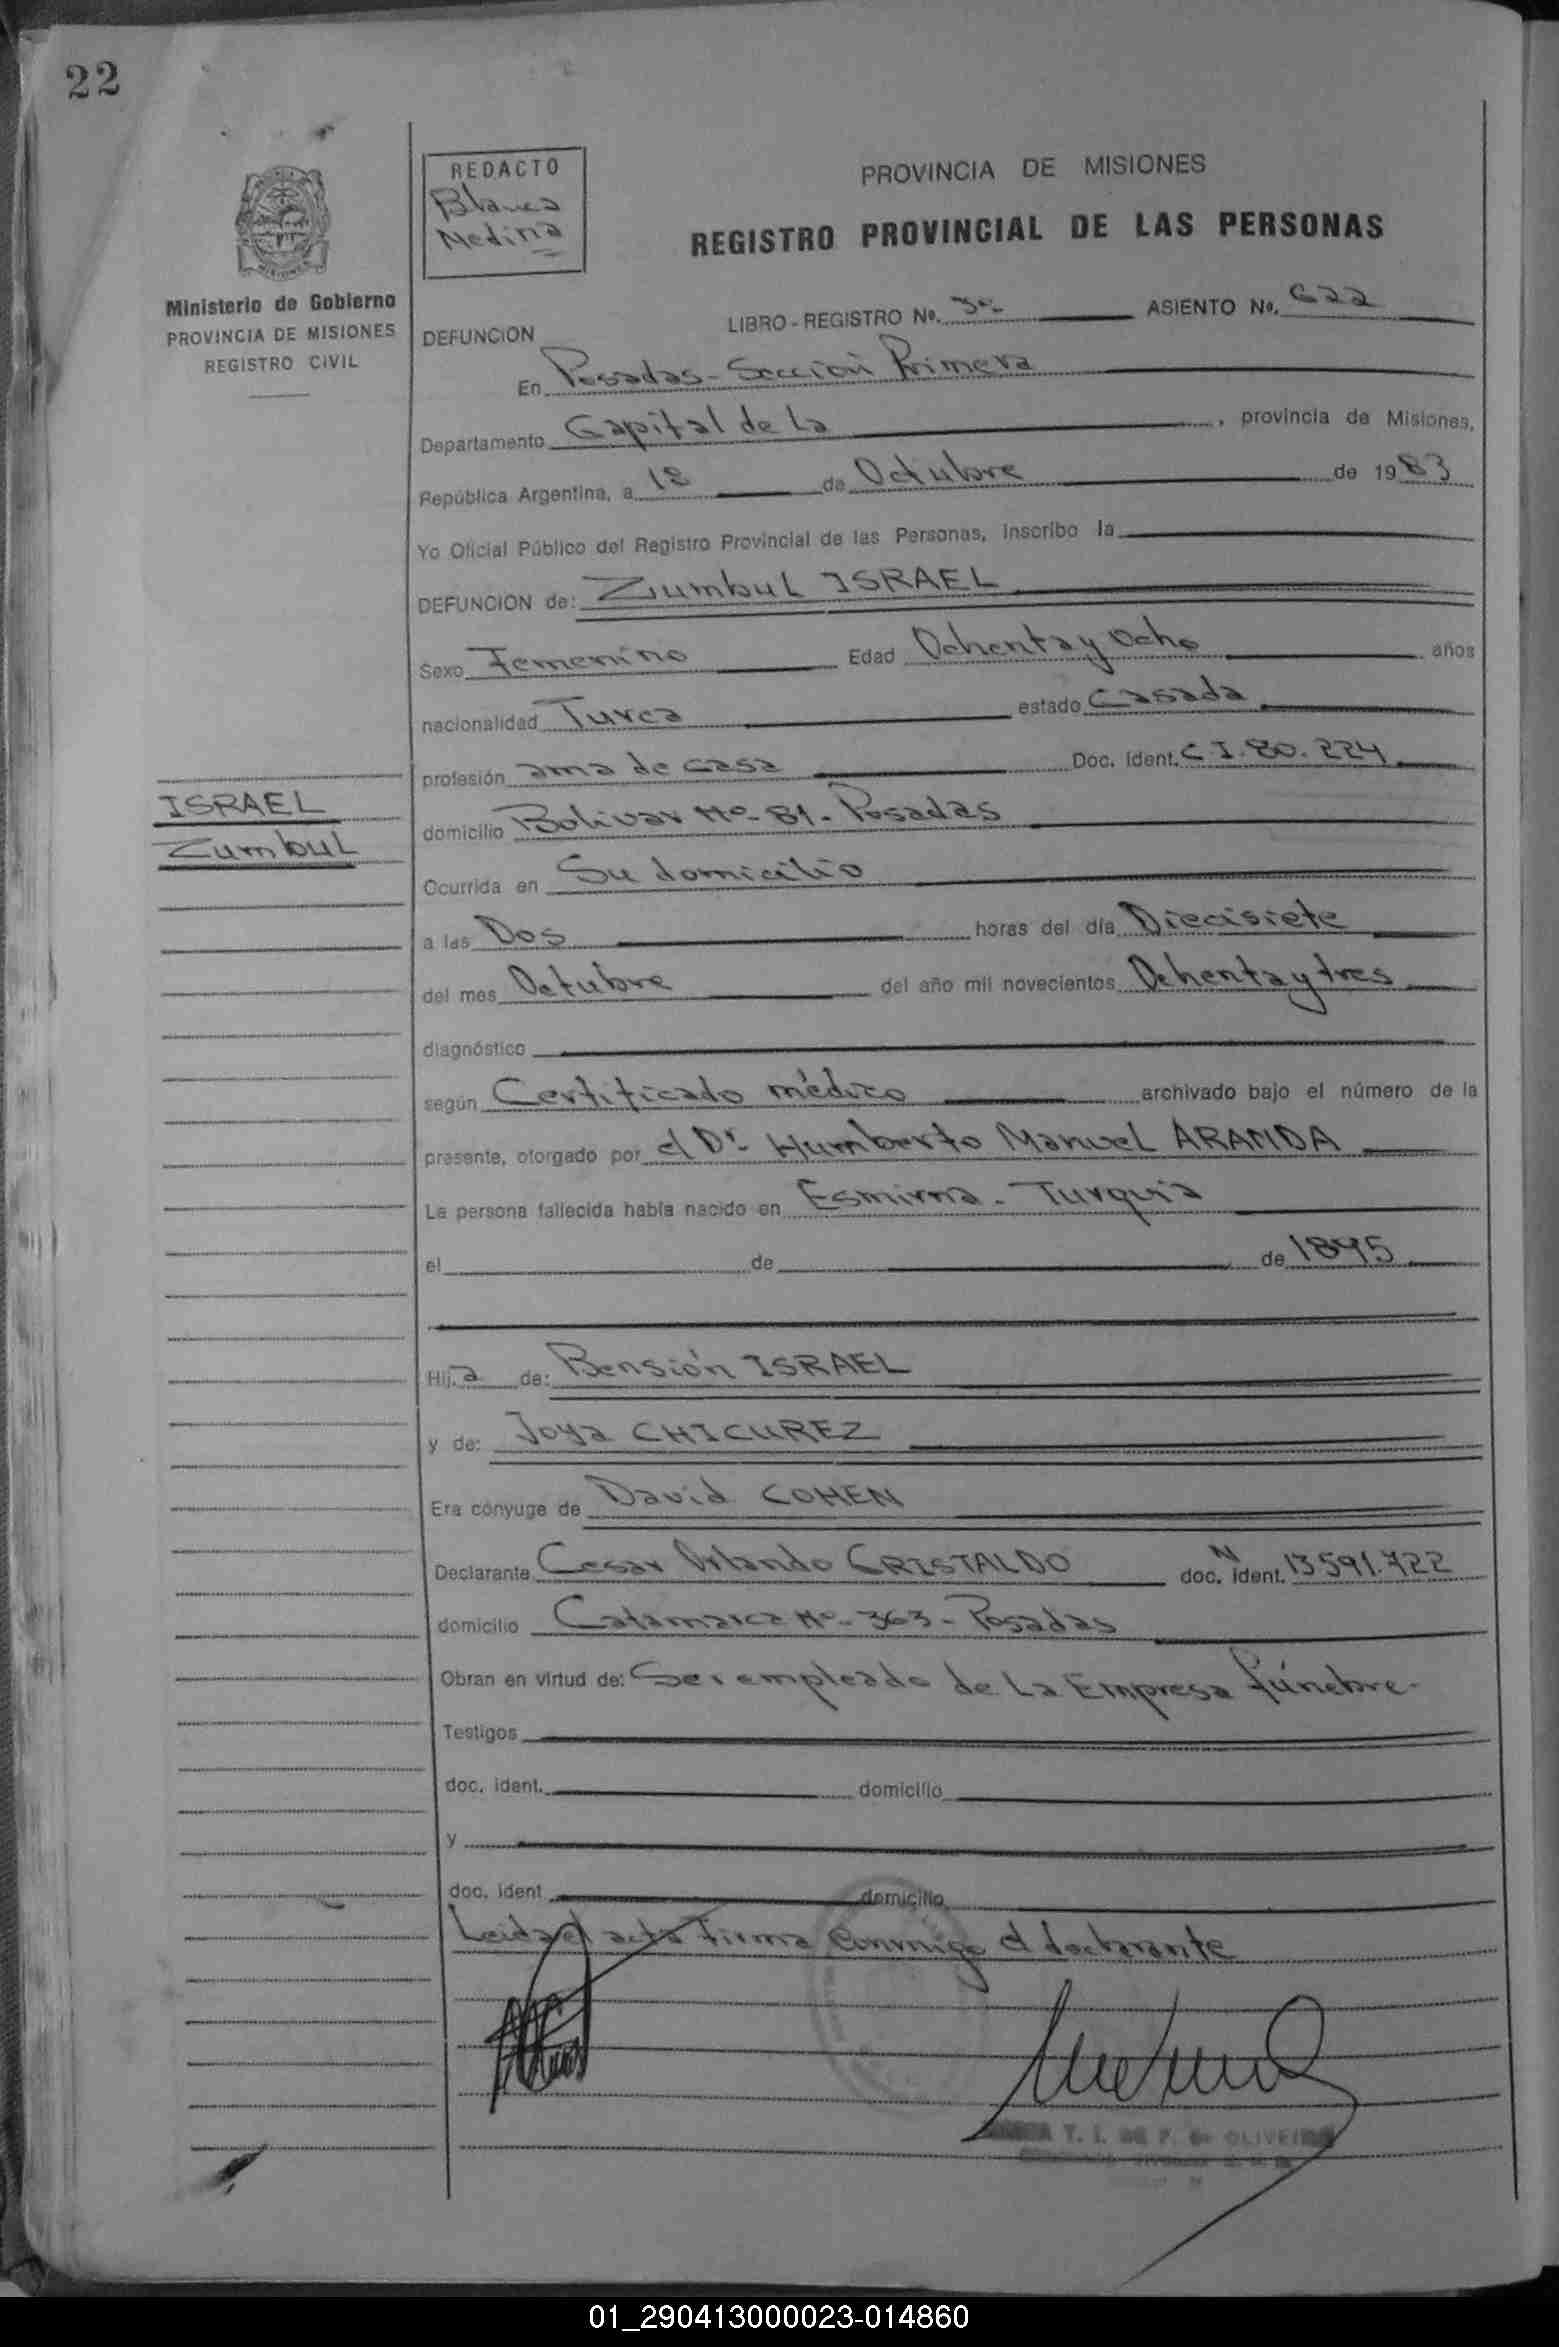 22
REDACTO
Blanca
Medina
PROVINCIA DE MISIONES
REGISTRO PROVINCIAL DE LAS PERSONAS
MISIONES
Ministerio de Gobierno
PROVINCIA DE MISIONES
REGISTRO CIVIL
DEFUNCION
LIBRO - REGISTRO Nº. 3º ASIENTO Nº. 622
En Posadas - Sección Primera
Departamento Capital de La , provincia de Misiones,
República Argentina, a 18 de Octubre de 1983
Yo Oficial Público del Registro Provincial de las Personas, inscribo la
DEFUNCION de: Zumbul ISRAEL
Sexo Femenino Edad Ochenta y Ocho años
nacionalidad Turca estado Casada
profesión ama de casa Doc. Ident. C.I. 80.224
ISRAEL
Zumbul
domicilio Bolivar Nº- 81 - Posadas
Ocurrida en Su domicilio
a las Dos horas del día Diecisiete
del mes Octubre del año mil novecientos Ochenta y tres
diagnóstico
según Certificado médico archivado bajo el número de la
presente, otorgado por el Dr. Humberto Manuel ARANDA
La persona fallecida había nacido en Esmirna - Turquía
el de de 1895
Hija de: Bensión ISRAEL
y de: Joya CHICUREZ
Era cónyuge de David COHEN
Declarante Cesar Orlando CRISTALDO doc. N ident. 13.591.722
domicilio Catamarca Nº- 363 - Posadas
Obran en virtud de: Ser empleado de La Empresa fúnebre.
Testigos
doc. ident. domicilio
y
doc. ident domicilio
Leida el acta firma conmigo el declarante
T. I. DE P. de OLIVEIRA
01_290413000023-014860